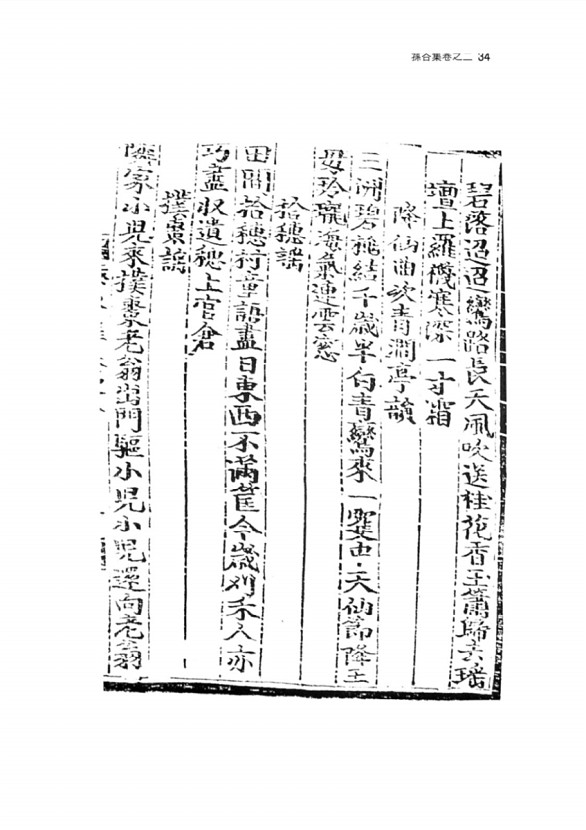 蓀谷集卷之二 34
碧落迢迢鸞路長天風吹送桂花香玉簫歸去瑤
壇上羅襪寒深一寸霜
降仙曲次青澗亭韻
三洲碧桃結千歲半青鸞來一雙中天仙節降王
母玲瓏海氣連雲窓
拾穗謠
田間拾穗村童語盡日東西不滿筐今歲刈禾人亦
巧盡收遺穗上官倉
撲棗謠
隣家小兒來撲棗老翁出門驅小兒小兒還向老翁